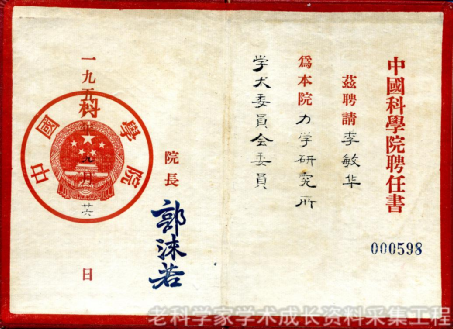 中國科學院聘任書
茲聘請李敏华
爲本院力学研究所
学术委員会委員
000598
院長
郭沫若
一九五 年 月 日
中國科學院
老科学家学术成长资料采集工程